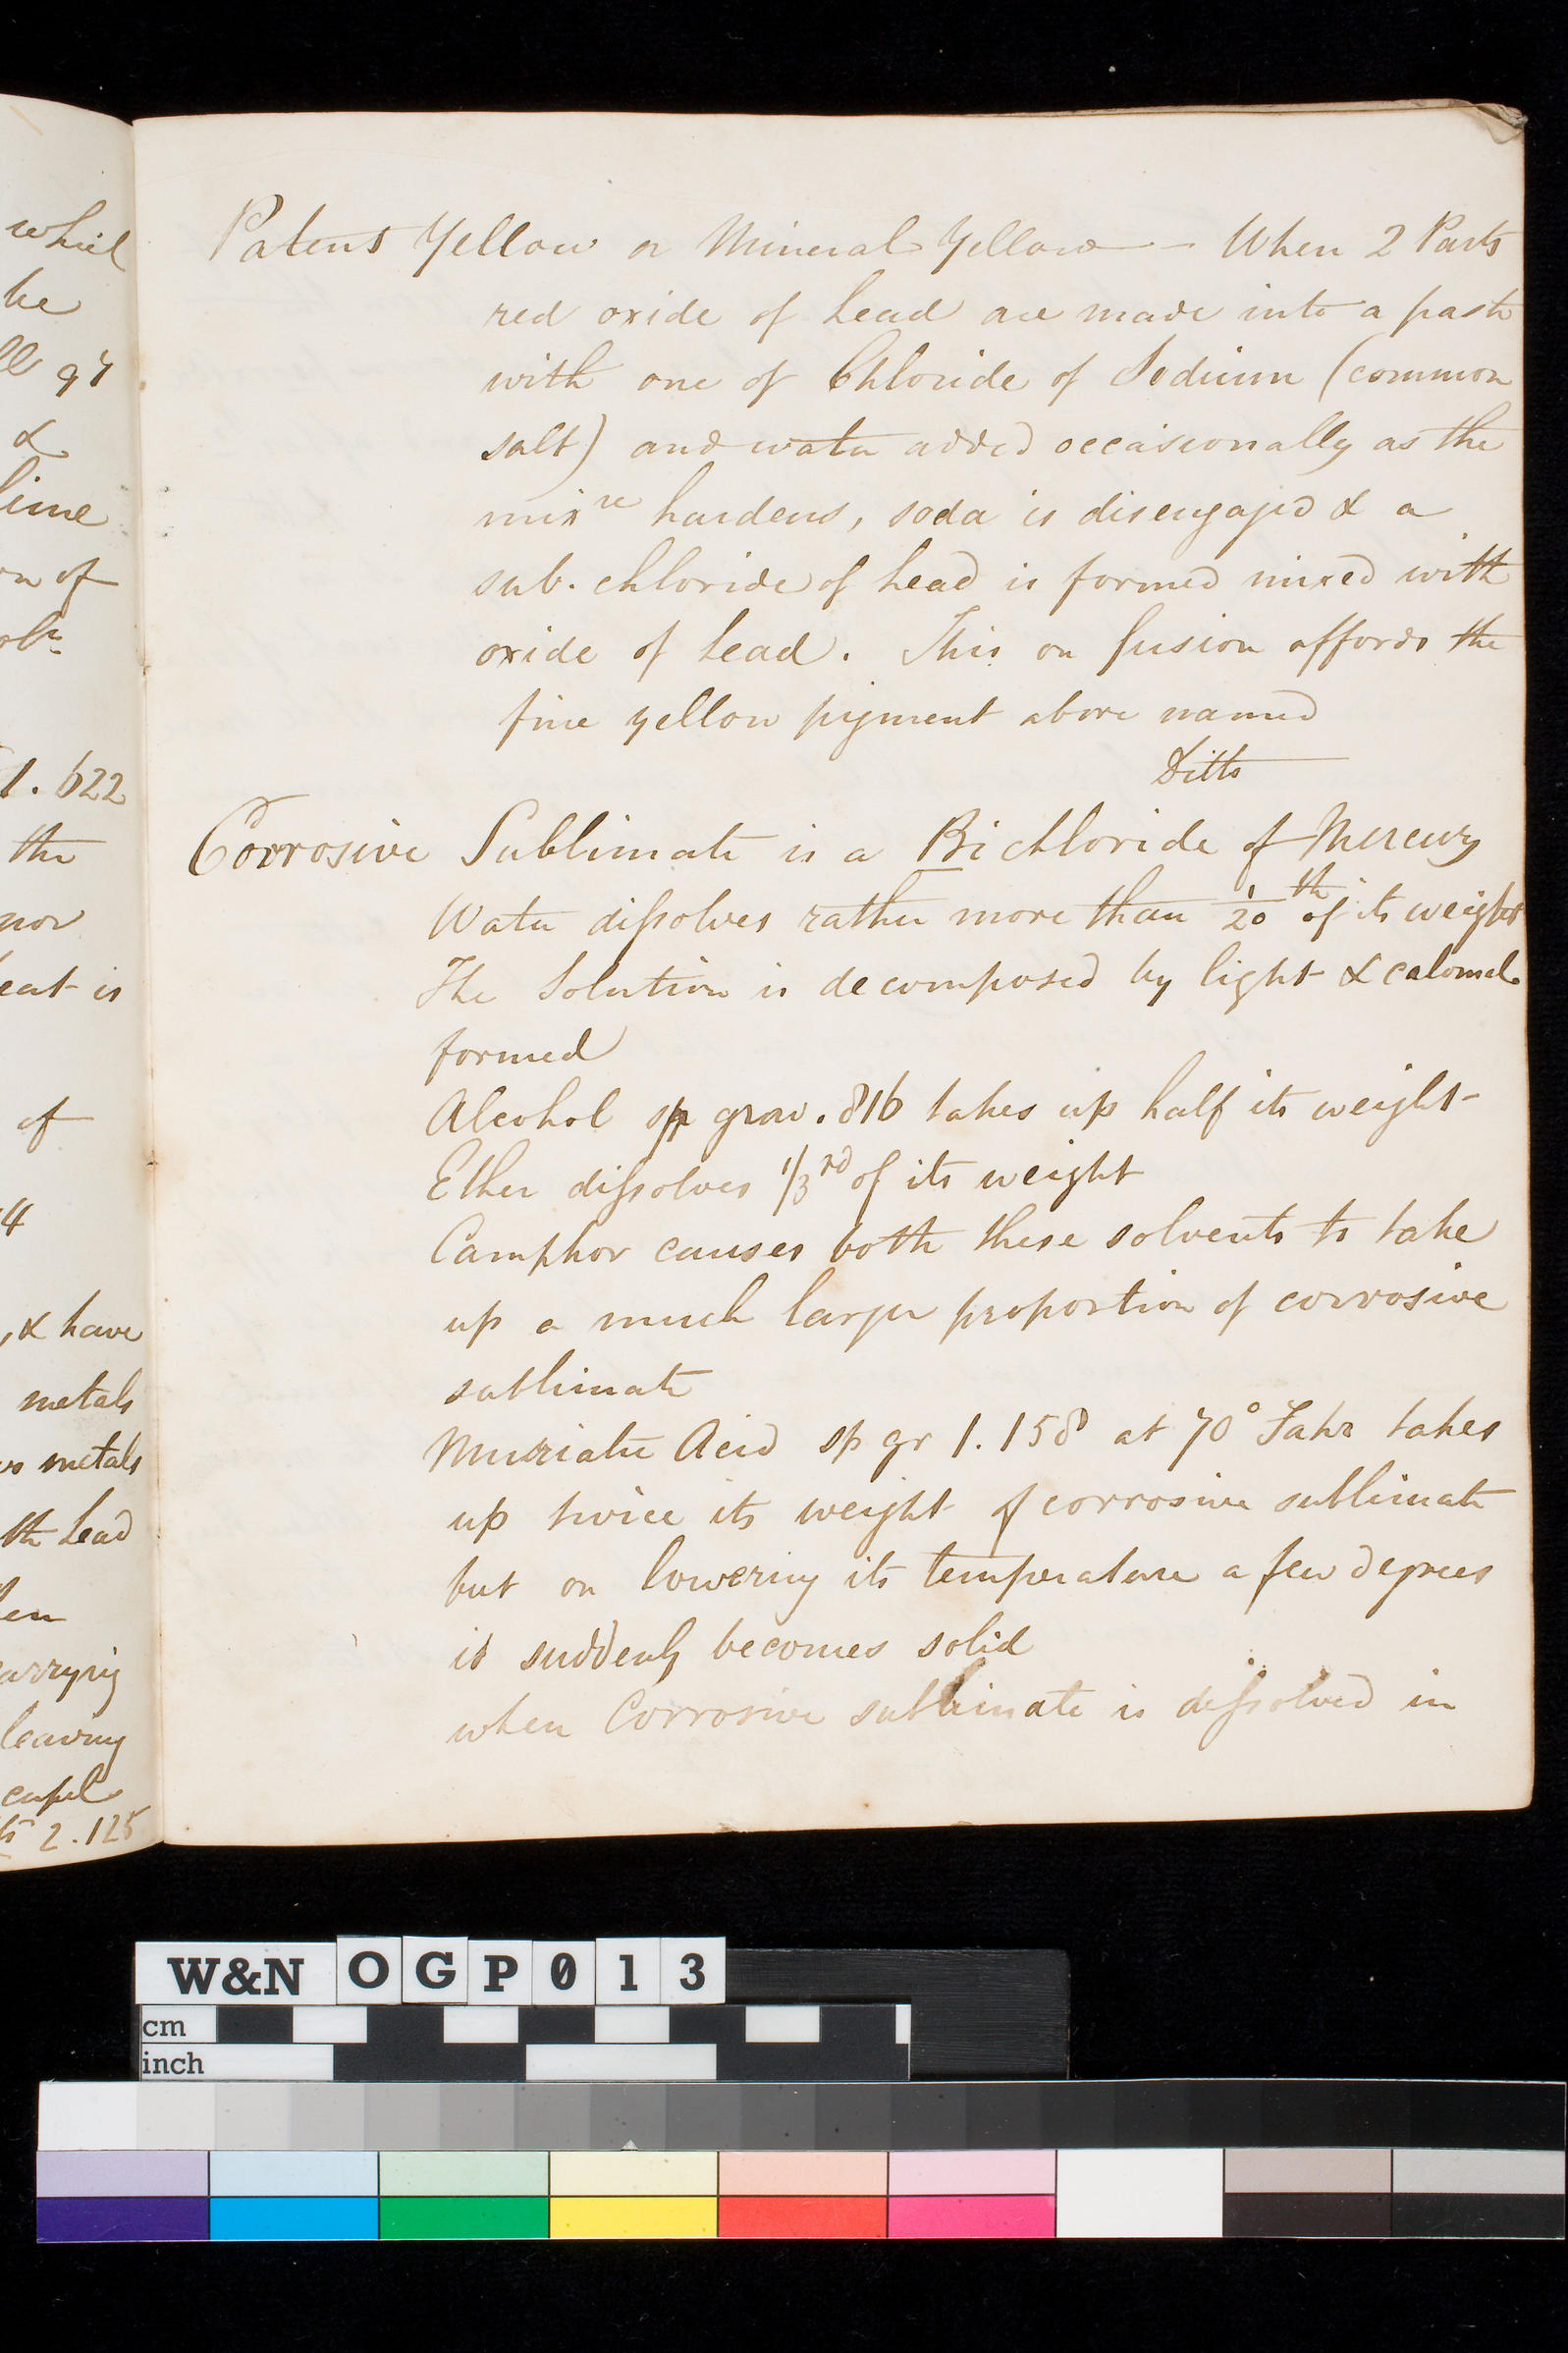 whiel
be
ll 97
&
lime
on of
1.622
the
nor
heat is
of
4
, & have
metals
metals
th Lead
en
arrying
leaving
cupel
2.125
Patent Yellow or Mineral Yellow — When 2 Parts
red oxide of Lead are made into a paste
with one of Chloride of Sodium (common
salt) and water added occaisionally as the
mixre hardens, soda is disengaged & a
sub. chloride of Lead is formed mixed with
oxide of Lead. This on fusion affords the
fine yellow pigment above named
Ditto
Corrosive Sublimate is a Bichloride of Mercury
Water dissolves rather more than 1/20th of its weight
The Solution is decomposed by light & calomel
formed
Alcohol sp grav .816 takes up half its weight
Ether dissolves 1/3rd of its weight
Camphor causes both these solvents to take
up a much larger proportion of corrosive
sublimate
Muriatic Acid sp gr 1.158 at 70° Fahr takes
up twice its weight of corrosive sublimate
but on lowering its temperature a few degrees
it suddenly becomes solid
when Corrosive sublimate is dissolved in
W&N OGP013
cm
inch